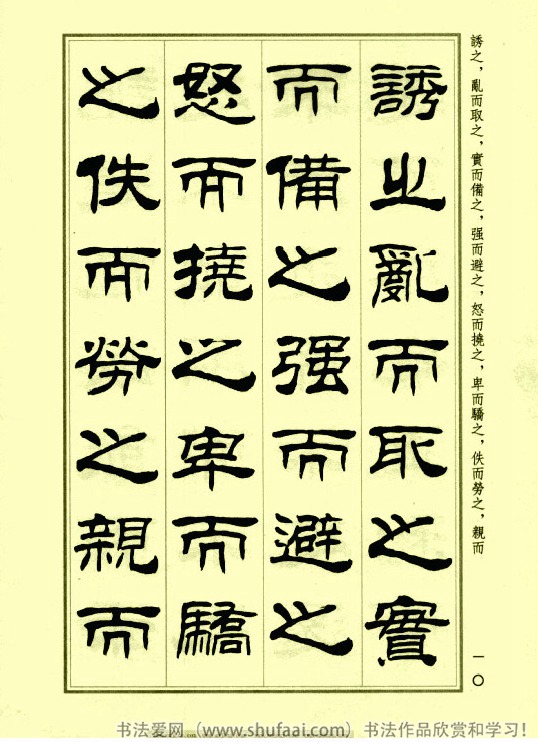 誘之，亂而取之，實而備之，强而避之，怒而撓之，卑而驕之，佚而勞之，親而
誘之亂而取之實
而備之强而避之
怒而撓之卑而驕
之佚而勞之親而
一〇
书法爱网（www.shufaai.com）书法作品欣赏和学习！